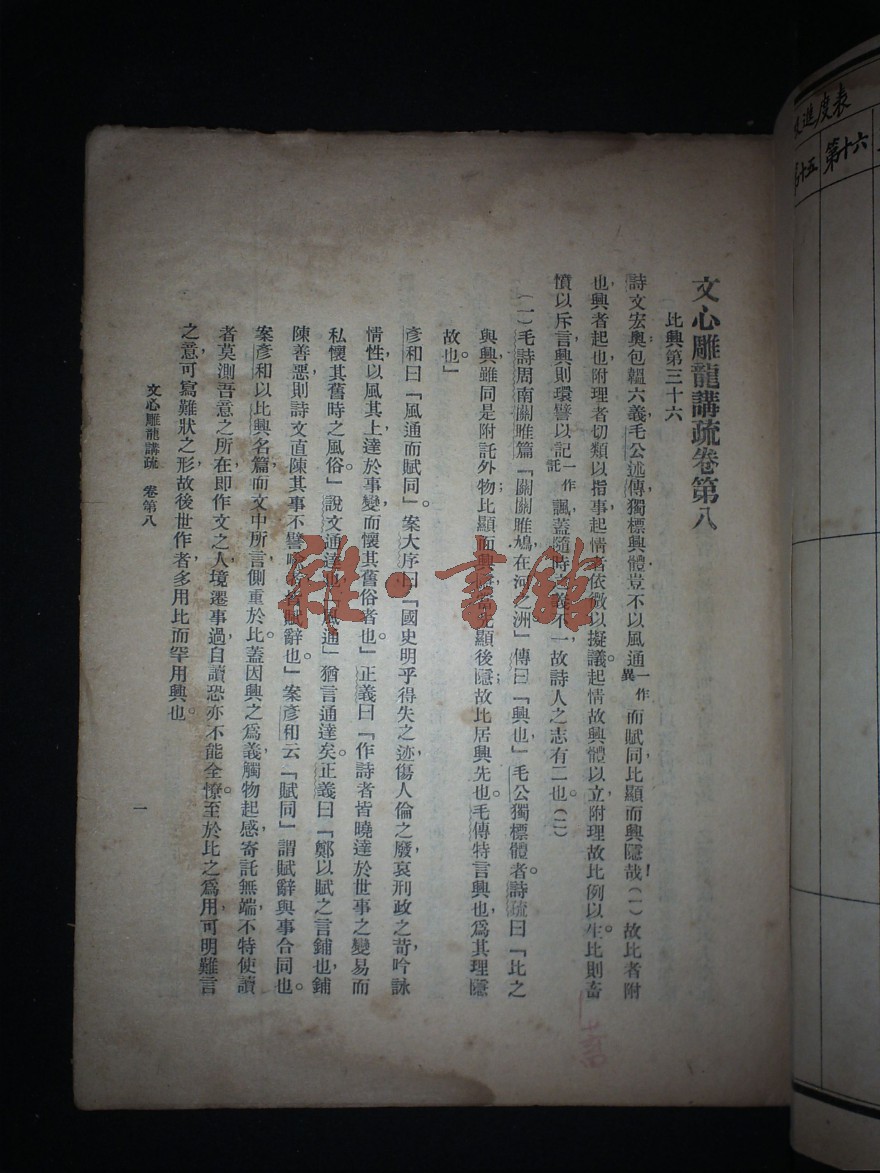 文心雕龍講疏卷第八
比興第三十六
詩文宏奧，包韞六義，毛公述傳，獨標興體，豈不以風通一作異而賦同，比顯而興隱哉！（一）故比者附
也，興者起也，附理者切類以指事，起情者依微以擬議，起情故興體以立，附理故比例以生。比則畜
憤以斥言，興則環譬以記一作託諷，蓋隨時之義不一，故詩人之志有二也。（二）
（一）毛詩周南關雎篇「關關雎鳩，在河之洲」傳曰「興也」毛公獨標體者。詩疏曰「比之
與興，雖同是附託外物，比顯而興隱，當先顯後隱，故比居興先也。毛傳特言興也，爲其理隱
故也。」
彥和曰「風通而賦同」。案大序曰「國史明乎得失之迹，傷人倫之廢，哀刑政之苛，吟詠
情性，以風其上，達於事變，而懷其舊俗者也。」正義曰「作詩者皆曉達於世事之變易，而
私懷其舊時之風俗。」說文通達也，「風通」猶言通達矣。正義曰「鄭以賦之言鋪也，鋪
陳善惡，則詩文直陳其事，不譬喻者，皆賦辭也」案彥和云「賦同」謂賦辭與事合同也。
案彥和以比興名篇，而文中所言，側重於比。蓋因興之爲義，觸物起感，寄託無端，不特使讀
者莫測吾意之所在，即作文之人，境遷事過，自讀恐亦不能全憭。至於比之爲用，可明難言
之意，可寫難狀之形，故後世作者多用比而罕用興也。
文心雕龍講疏　卷第八
一
蓄
雜·書館
進度表
十五
第十六